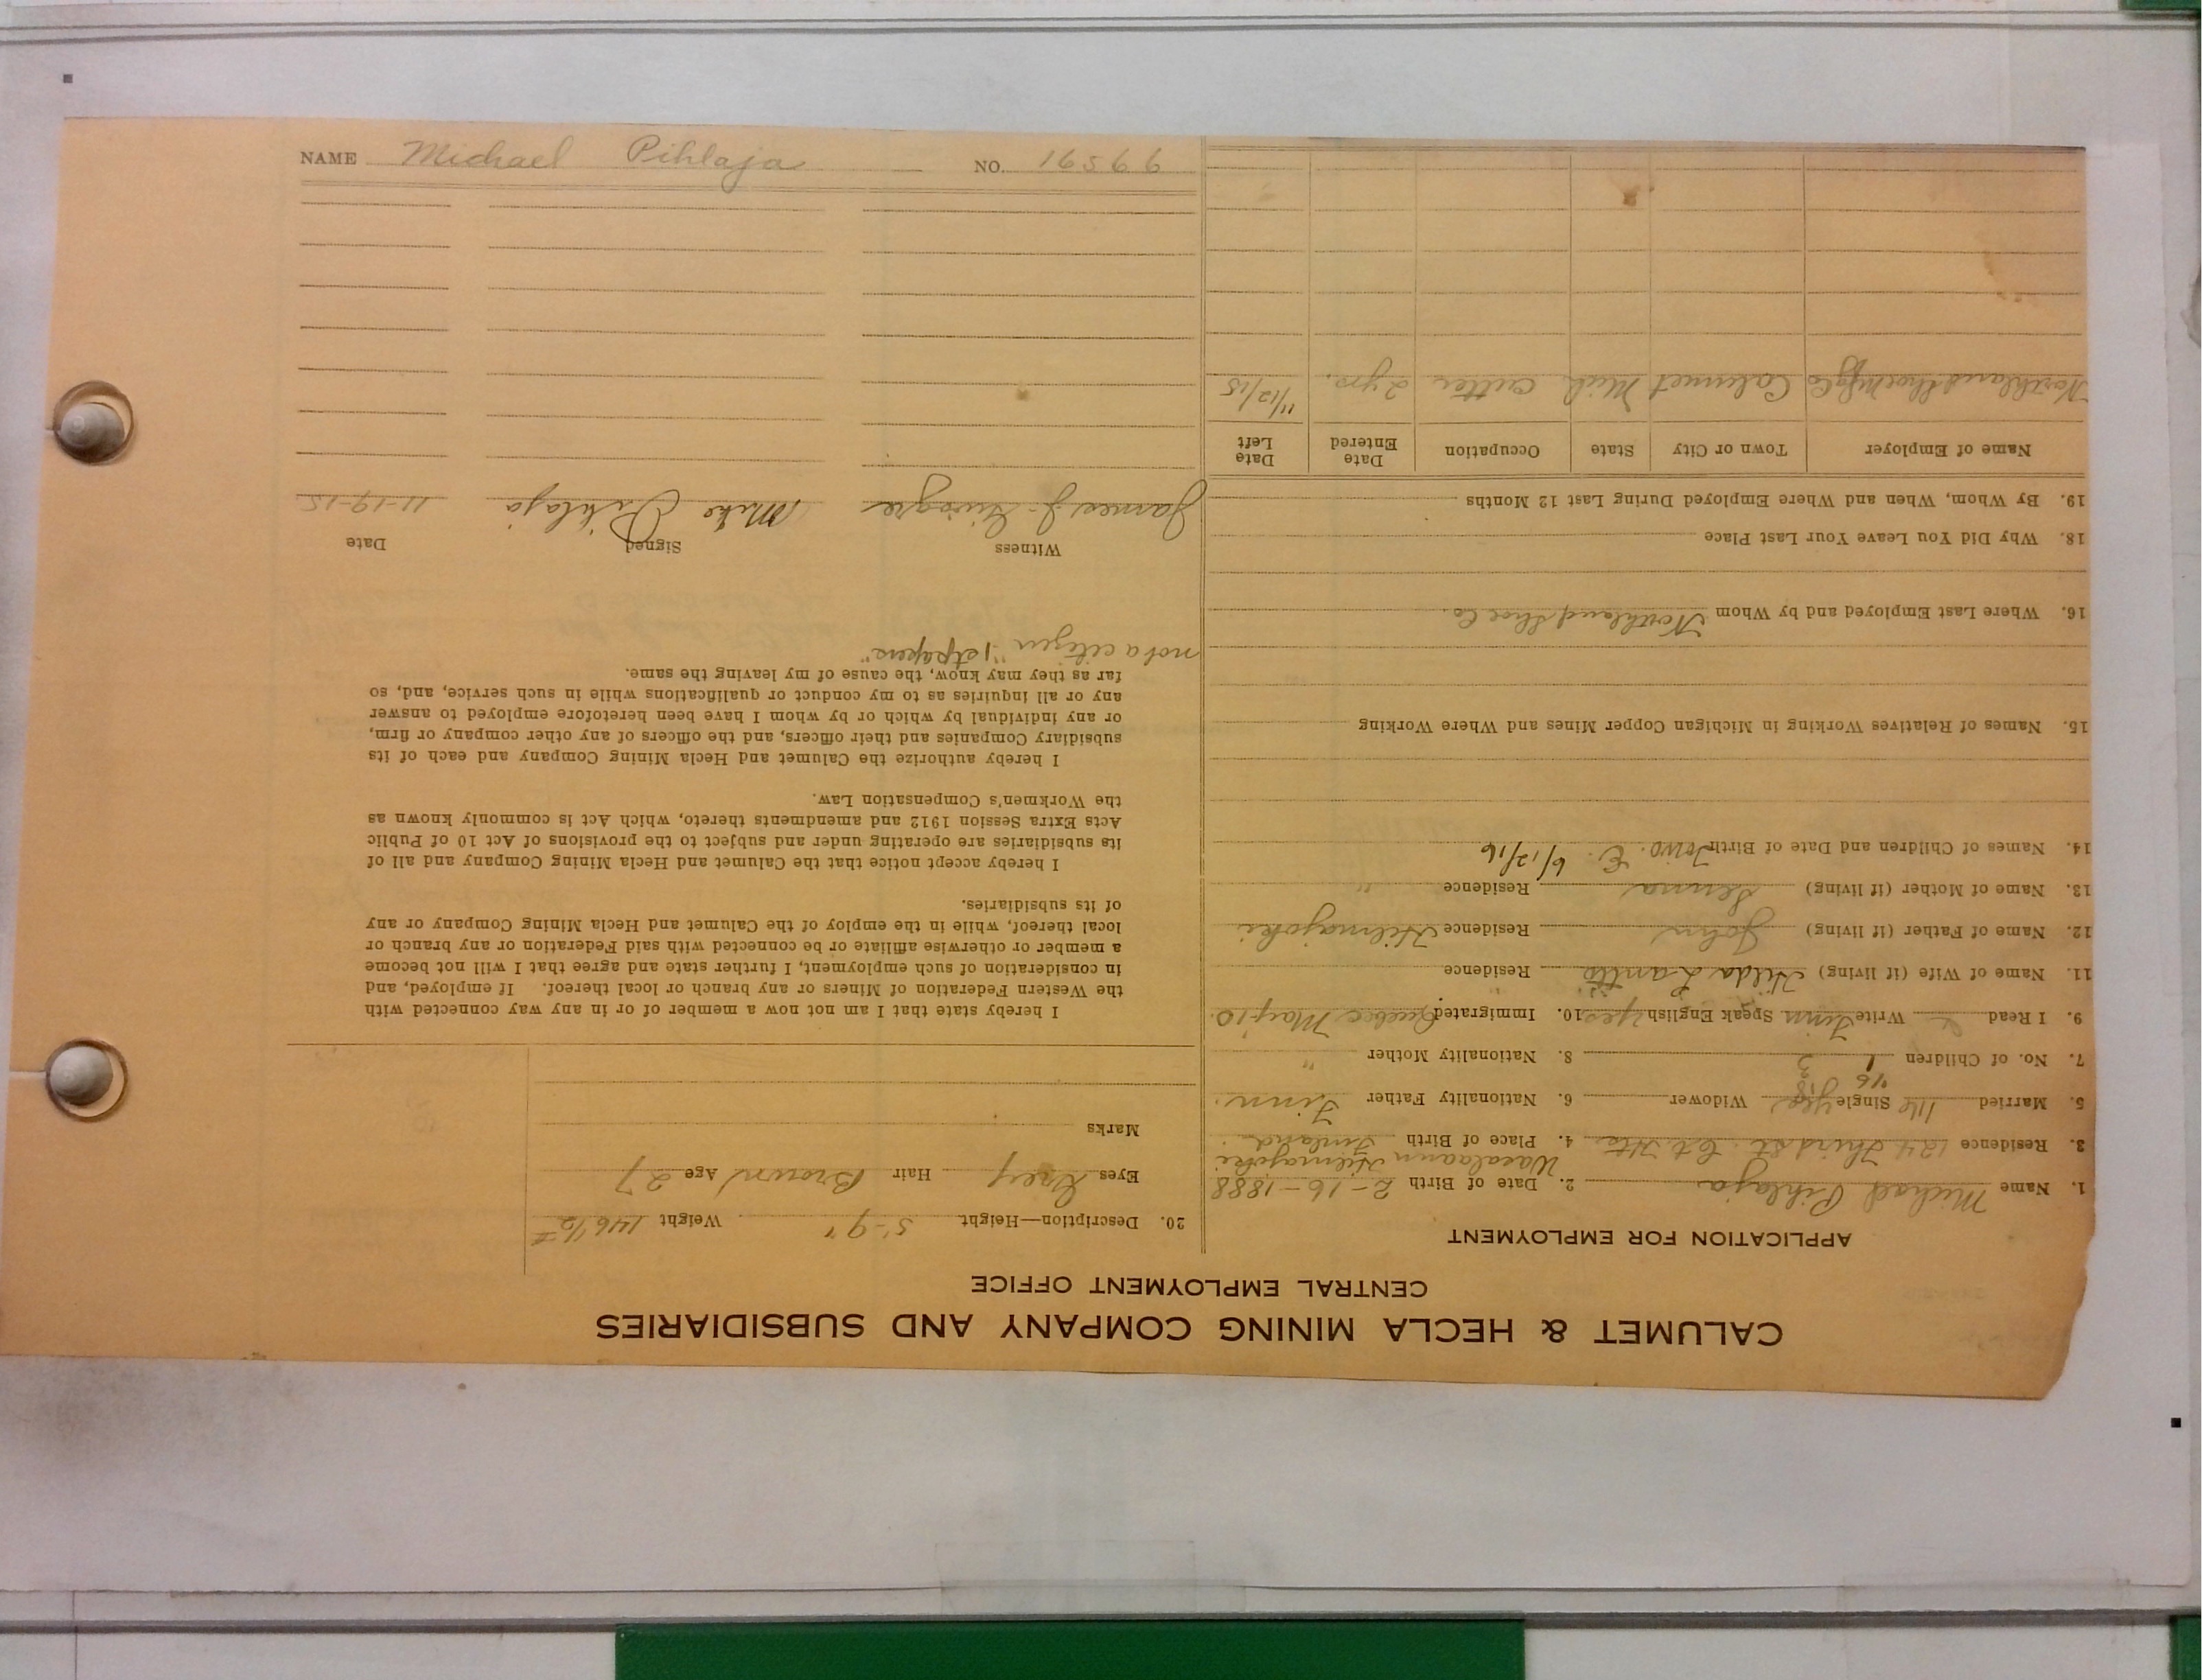 NAME Michael Pihlaja NO. 16566
CALUMET & HECLA MINING COMPANY AND SUBSIDIARIES
CENTRAL EMPLOYMENT OFFICE
APPLICATION FOR EMPLOYMENT
1. Name Michael Pihlaja 2. Date of Birth 2-16-1888
3. Residence 124 Third St. 4. Place of Birth Finland
5. Married Single yes Widower 6. Nationality Father Finn.
7. No. of Children 1 8. Nationality Mother "
9. I Read Write Finn Speak English yes 10. Immigrated Quebec May-10.
11. Name of Wife (if living) Hilda Lantto Residence
12. Name of Father (if living) John Residence Hilmajoki
13. Name of Mother (if living) Residence "
14. Names of Children and Date of Birth Toivo. E. 6/12/16
15. Names of Relatives Working in Michigan Copper Mines and Where Working
16. Where Last Employed and by Whom Northland Shoe Co.
18. Why Did You Leave Your Last Place
19. By Whom, When and Where Employed During Last 12 Months
Name of Employer Town or City State Occupation Date Entered Date Left
Northland Shoe Mfg Co Calumet Mich cutter 2 yrs. 11/12/15
20. Description—Height 5'-9" Weight 146 1/2
Eyes Grey Hair Brown Age 27
Marks
I hereby state that I am not now a member of or in any way connected with
the Western Federation of Miners or any branch or local thereof. If employed, and
in consideration of such employment, I further state and agree that I will not become
a member or otherwise affiliate or be connected with said Federation or any branch or
local thereof, while in the employ of the Calumet and Hecla Mining Company or any
of its subsidiaries.
I hereby accept notice that the Calumet and Hecla Mining Company and all of
its subsidiaries are operating under and subject to the provisions of Act 10 of Public
Acts Extra Session 1912 and amendments thereto, which Act is commonly known as
the Workmen's Compensation Law.
I hereby authorize the Calumet and Hecla Mining Company and each of its
subsidiary Companies and their officers, and the officers of any other company or firm,
or any individual by which or by whom I have been heretofore employed to answer
any or all inquiries as to my conduct or qualifications while in such service, and, so
far as they may know, the cause of my leaving the same.
not a citizen "1st papers"
Witness Signed Date
James J. Mike Pihlaja 11-19-15